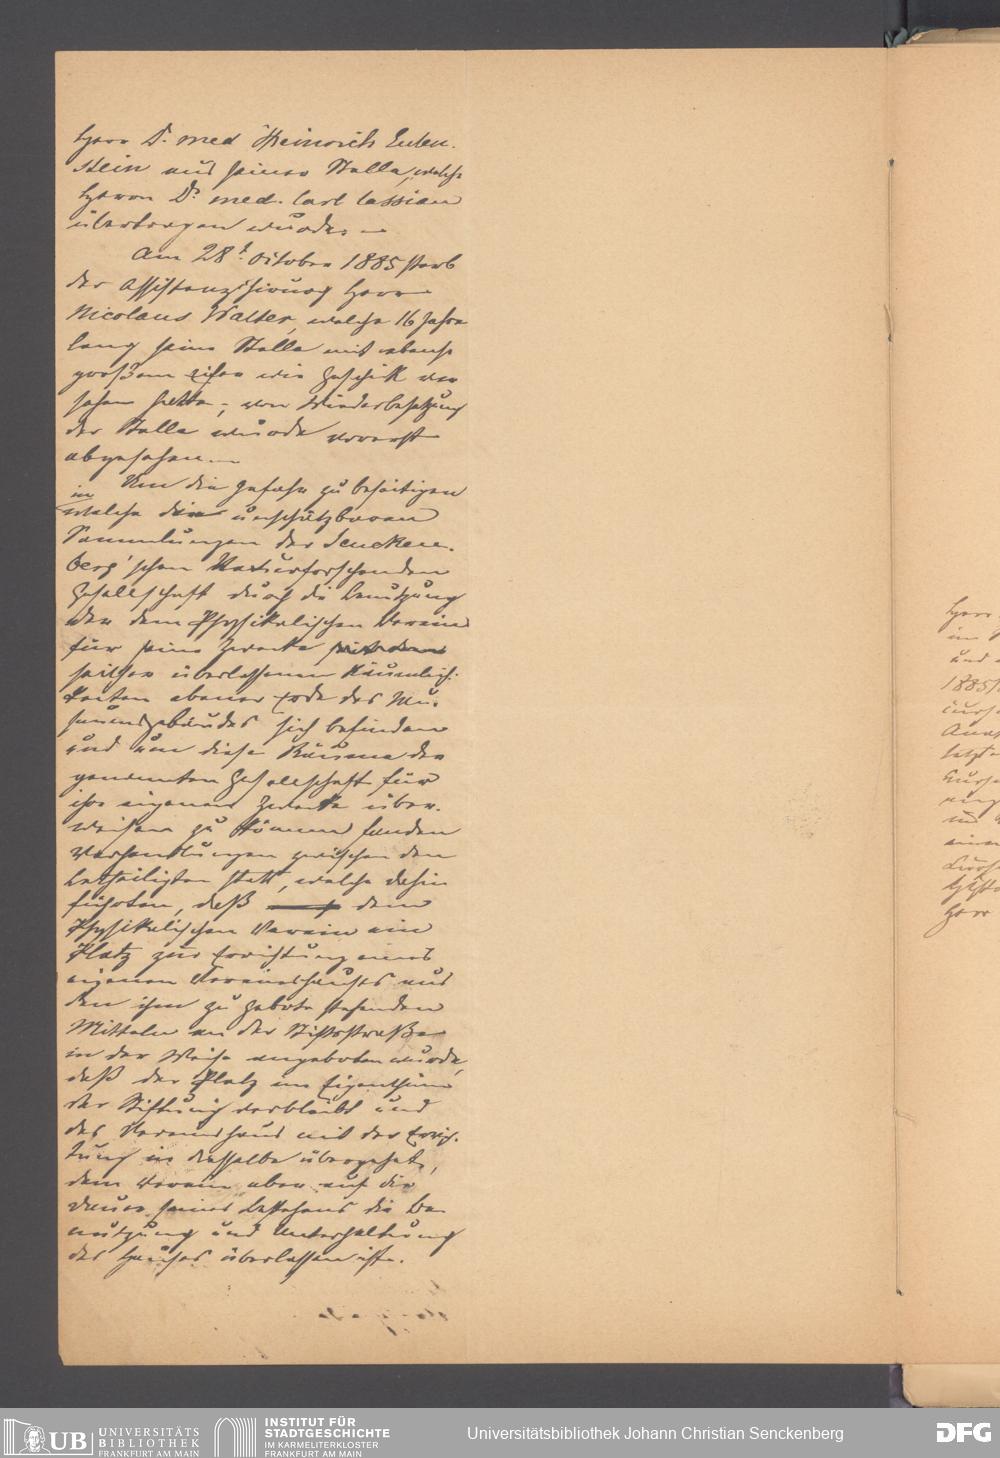 Herr Dr. med Heinrich Euten-
stein aus seiner Stelle, welche
Herrn Dr. med. Carl Cassian
übertragen wurde. —
Am 28t. October 1885 starb
der Assistenzchirurg Herr
Nicolaus Walter, welcher 16 Jahre
lang seine Stelle mit ebenso
großem Eifer wie Geschick ver
sehen hatte; von Wiederbesetzung
der Stelle wurde vorerst
abgesehen. —
Um die Gefahr zu beseitigen
in
welche die unschätzbaren
Sammlungen der Sencken-
berg'schen Naturforschenden
Gesellschaft durch die Benutzung
der dem Physikalischen Verein
für seine Zwecke
seither überlassenen Räumlich-
keiten ebener Erde des Mu-
seumsgebäudes sich befinden
und um diese Räume der
genannten Gesellschaft für
ihre eigenen Zwecke über-
weisen zu können fanden
Verhandlungen zwischen den
Betheiligten statt, welche dahin
führten, daß dem
Physikalischen Verein ein
Platz zur Errichtung eines
eigenen Vereinshauses aus
den ihm zu Gebote stehenden
Mitteln an der Stiftstraße
in der Weise angeboten wurde,
daß der Platz im Eigenthum
der Stiftung verbleibt und
das Vereinshaus mit der Errich-
tung in dasselbe übergehet,
dem Verein aber auf die
Dauer seines Bestehens die Be-
nutzung und Unterhaltung
des Hauses überlassen ist.
Herr
im
und
1885/
letzte
einer
Herr
UB UNIVERSITÄTS
BIBLIOTHEK
FRANKFURT AM MAIN
INSTITUT FÜR
STADTGESCHICHTE
IM KARMELITERKLOSTER
FRANKFURT AM MAIN
Universitätsbibliothek Johann Christian Senckenberg
DFG